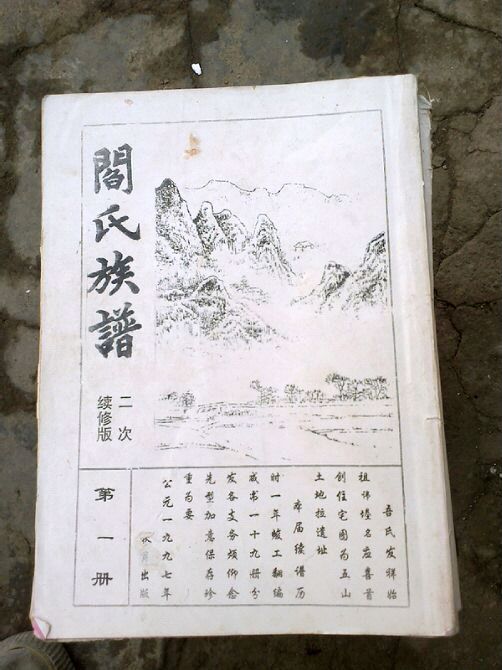 閻氏族譜
二次
续修版
第一册
吾氏发祥始
祖伟名岩喜首
创住宅图为五山
土地拉遗址
本届续谱历
时一年竣工翻编
成书一十九册分
发各支各须仰念
先型加意保存珍
重为要
公元一九九七年
月出版